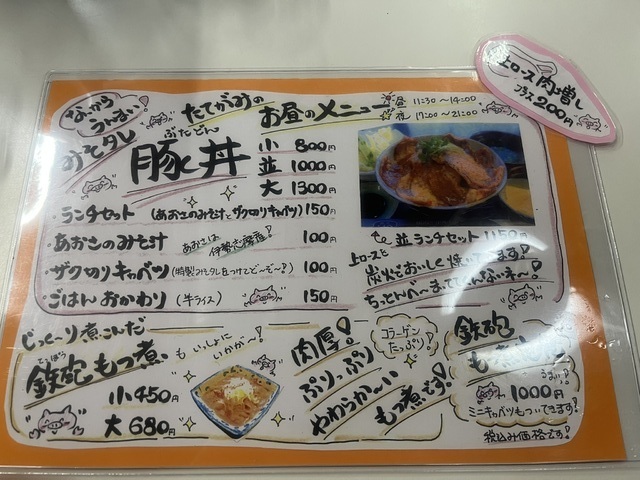 上ロース肉増し
プラス200円
なかから
うんまい
みそタレ
たてがみの
お昼のメニュー
昼 11:30~14:00
夜 17:00~21:00
ぶたどん
豚丼
小 800円
並 1000円
大 1300円
・ランチセット (あおさのみそ汁とザク切りキャベツ) 150円
・あおさのみそ汁 あおさは伊勢志摩産! 100円
・ザク切りキャベツ (特製みそタレをつけてど~ぞ~?) 100円
・ごはんおかわり (半ライス) 150円
並ランチセット 1150円
上ロースを
炭火でおいしく焼いてます!
じっく~り煮こんだ
てっぽう
鉄砲もつ煮
も いっしょに
いかが~!
小 450円
大 680円
肉厚!
ぷりっぷり
やわらかい
もつ煮です!
コラーゲン
たっぷり!
鉄砲
1000円
ミニキャベツもついてきます!
税込み価格です!